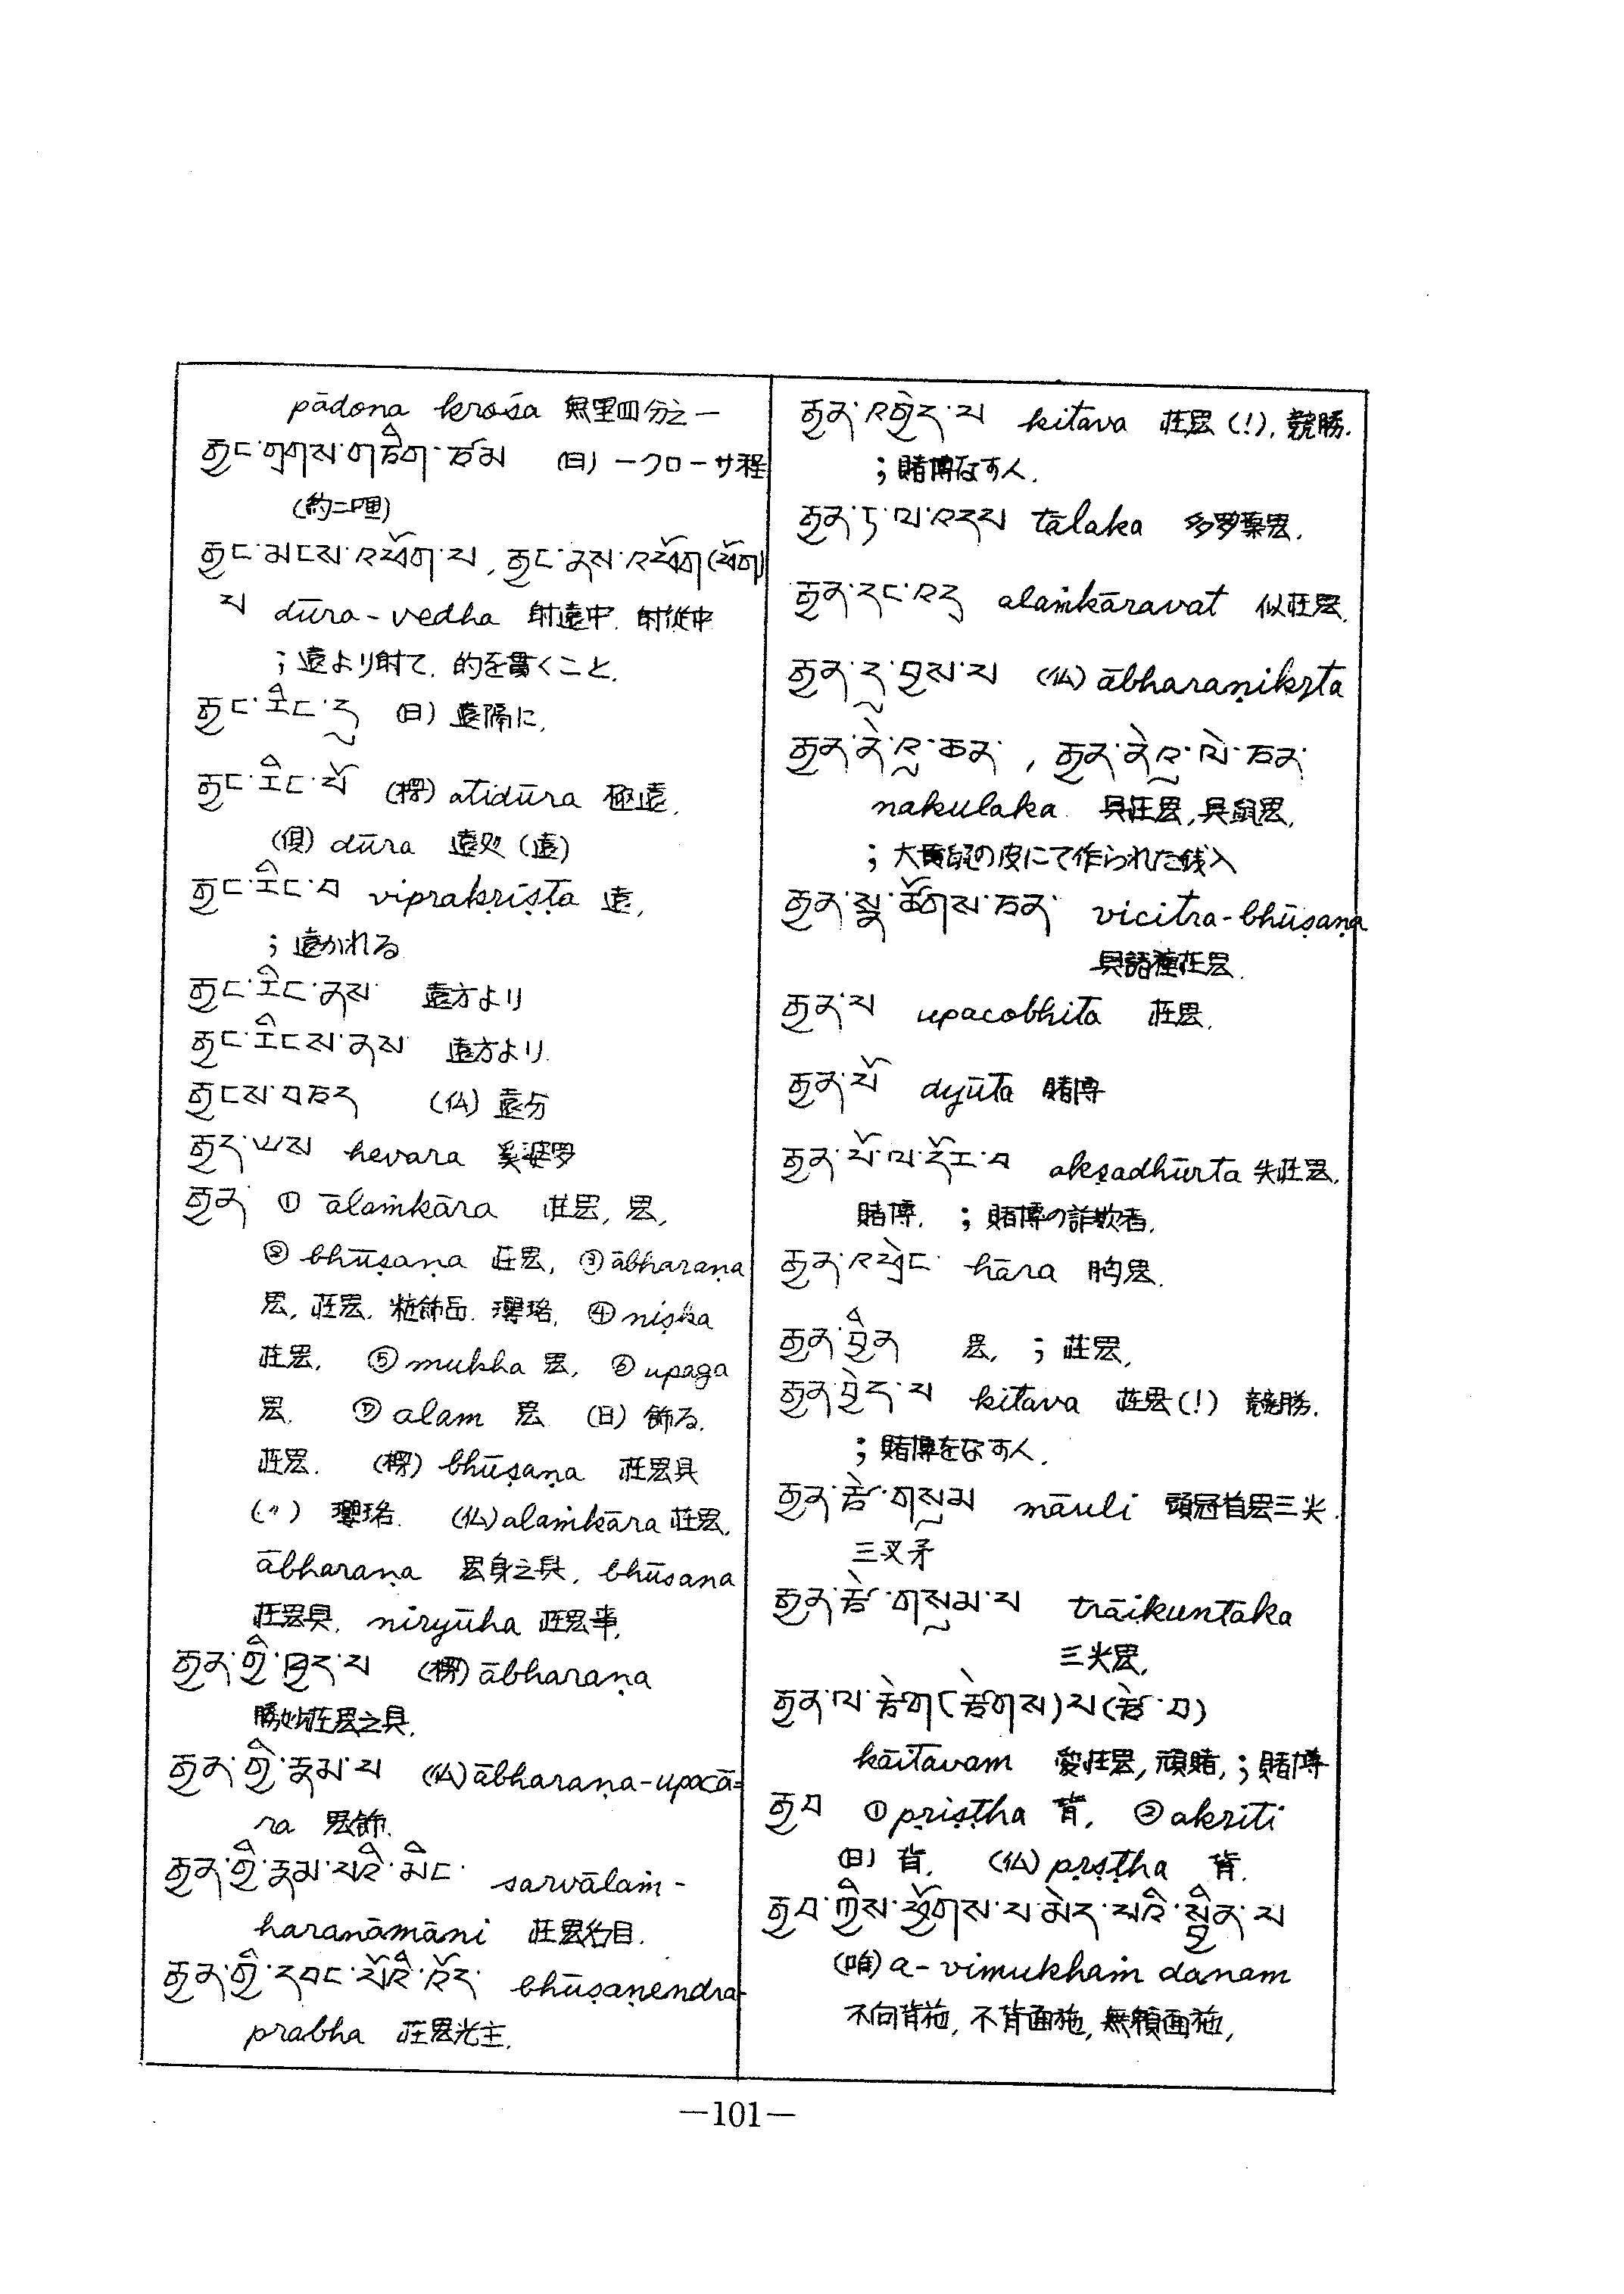 pādona krośa 無里四分之一
རྒྱང་གྲགས་གཅིག་ཙམ (日) 一クローサ程
(約二哩)
རྒྱང་མངས་འཕོག་པ, རྒྱང་ནས་འཕོག(ཕོག)
པ dūra-vedha 射遠中. 射従中
; 遠より射て. 的を貫くこと.
རྒྱང་རིང་དུ (日) 遠隔に.
རྒྱང་རིང་པོ (楞) atidūra 極遠.
(倶) dūra 遠処 (遠)
རྒྱང་རིང་བ viprakṛiṣṭa 遠.
; 遠かれる
རྒྱང་རིང་ནས 遠方より
རྒྱང་རིངས་ནས 遠方より.
རྒྱངས་བཅད (仏) 遠分
རྒྱད་ཡས hevara 奚婆罗
རྒྱན ① ālaṁkāra 荘厳, 厳,
② bhūṣaṇa 荘厳, ③ ābharaṇa
厳, 荘厳. 粧飾品. 瓔珞, ④ niṣka
荘厳, ⑤ mukha 厳, ⑥ upaga
厳. ⑦ alam 厳 (日) 飾る.
荘厳. (楞) bhūṣaṇa 荘厳具
(〃) 瓔珞. (仏) alaṁkāra 荘厳.
ābharaṇa 厳身之具, bhūsana
荘厳具. niryūha 荘厳事.
རྒྱན་གྱི་ཁྱད་པ (楞) ābharaṇa
勝妙荘厳之具.
རྒྱན་གྱི་རྣམ་པ (仏) ābharaṇa-upacā=
ra 厳飾.
རྒྱན་གྱི་རྣམ་པའི་མིང་ sarvālaṁ-
haranāmāni 荘厳名目.
རྒྱན་གྱི་དབང་པོའི་འོད་ bhūṣaṇendra-
prabha 荘厳光主.
རྒྱན་འགྱེད་པ kitava 荘厳 (!), 競勝.
; 賭博なす人.
རྒྱན་ཏ་ལ་འདས tālaka 多罗葉厳.
རྒྱན་དང་འདྲ alaṁkāravat 似荘厳.
རྒྱན་དུ་བྱས་པ (仏) ābharaṇikṛta
རྒྱན་ནེའུ་ཆན, རྒྱན་ནེའུ་ལེ་ཅན
nakulaka 具荘厳, 具鼠厳.
; 大黄鼠の皮にて作られた銭入
རྒྱན་སྣ་ཚོགས་ཅན vicitra-bhūṣaṇa
具諸種荘厳.
རྒྱན་པ upacobhita 荘厳.
རྒྱན་པོ dyūta 賭博
རྒྱན་པོ་ལ་དོར་བ akṣadhūrta 失荘厳.
賭博. ; 賭博の詐欺者.
རྒྱན་འཕྱང་ hāra 胸厳.
རྒྱན་བྱིན 厳, ; 荘厳,
རྒྱན་བྱེད་པ kitava 荘厳(!) 競勝.
; 賭博をなす人.
རྒྱན་རྩེ་གསུམ māuli 頭冠首厳三尖.
三叉矛
རྒྱན་རྩེ་གསུམ་པ trāikuntaka
三尖厳,
རྒྱན་ལ་རྩེག(རྩེགས)པ(རྩེ་བ)
kāitavam 愛荘厳, 頑賭, ; 賭博
རྒྱབ ① pṛiṣṭha 背, ② akriti
(日) 背. (仏) pṛṣṭha 背.
རྒྱབ་ཀྱིས་ཕྱོགས་པ་མེད་པའི་སྦྱིན་པ
a-vimukhaṁ danam
不向背施, 不背面施, 無顏面施,
—101—